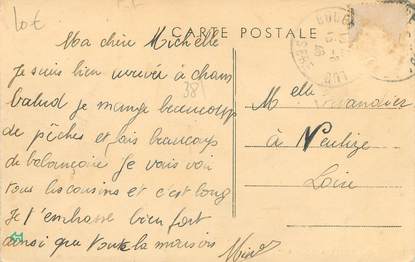 Lot
CARTE POSTALE
Ma chère Michelle
Je suis bien arrivée à cham
balud je mange beaucoup
de pêches et fais beaucoup
de balançoire Je vais voir
tous les cousins et c'est long
Je t'embrasse bien fort
ainsi que toute la maison
381
Melle
à Neulize
Loire